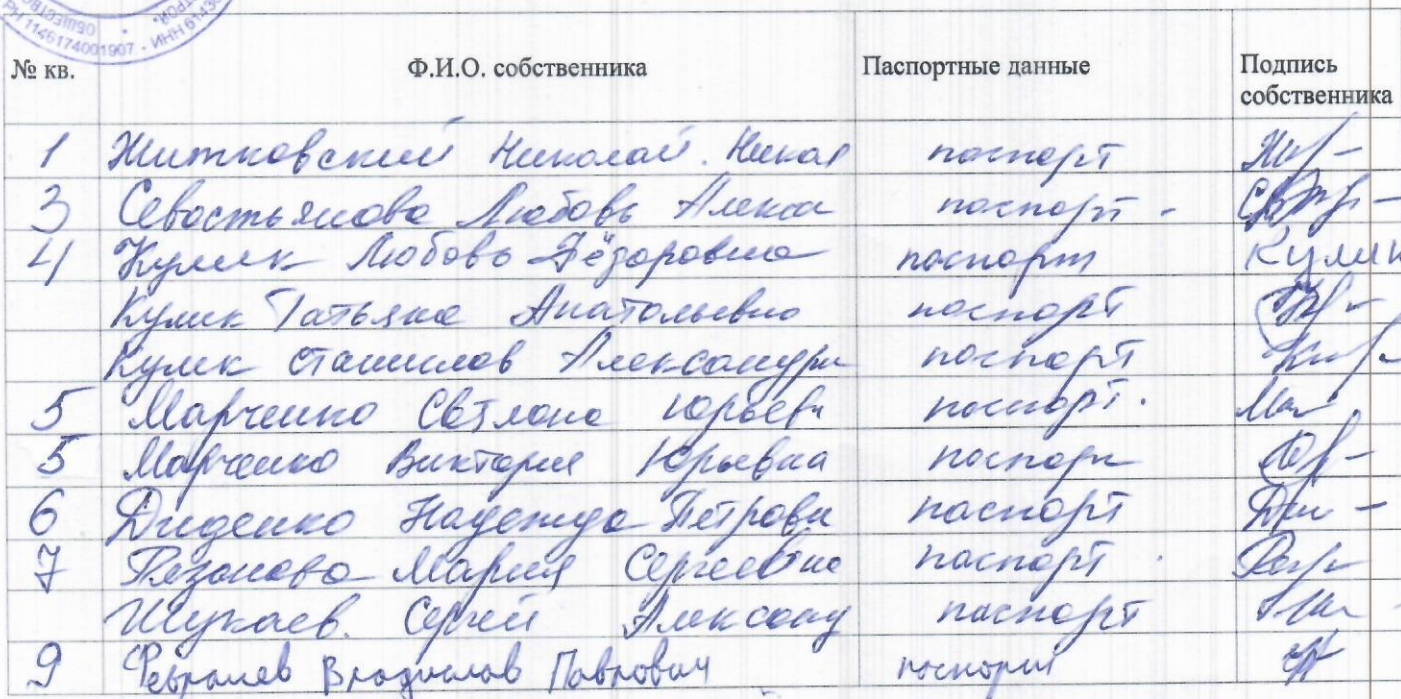 ОБЩЕСТВО
РН 1146174001907 - ИНН 6143
№ кв. Ф.И.О. собственника Паспортные данные Подпись
собственника
1 Житковский Николай. Никол паспорт
3 Севостьянова Любовь Алекса паспорт -
4 Кулик Любовь Фёдоровна паспорт Кулик
Кулик Татьяна Анатольевна паспорт
Кулик Станислав Александри паспорт
5 Марченко Светлана Юрьевн паспорт. Мар
5 Марченко Виктория Юрьевна паспорт
6 Диденко Надежда Петровн паспорт
7 Рязанова Мария Сергеевна паспорт
Шукаев. Сергей Александ паспорт
9 Владислав Павлович паспорт